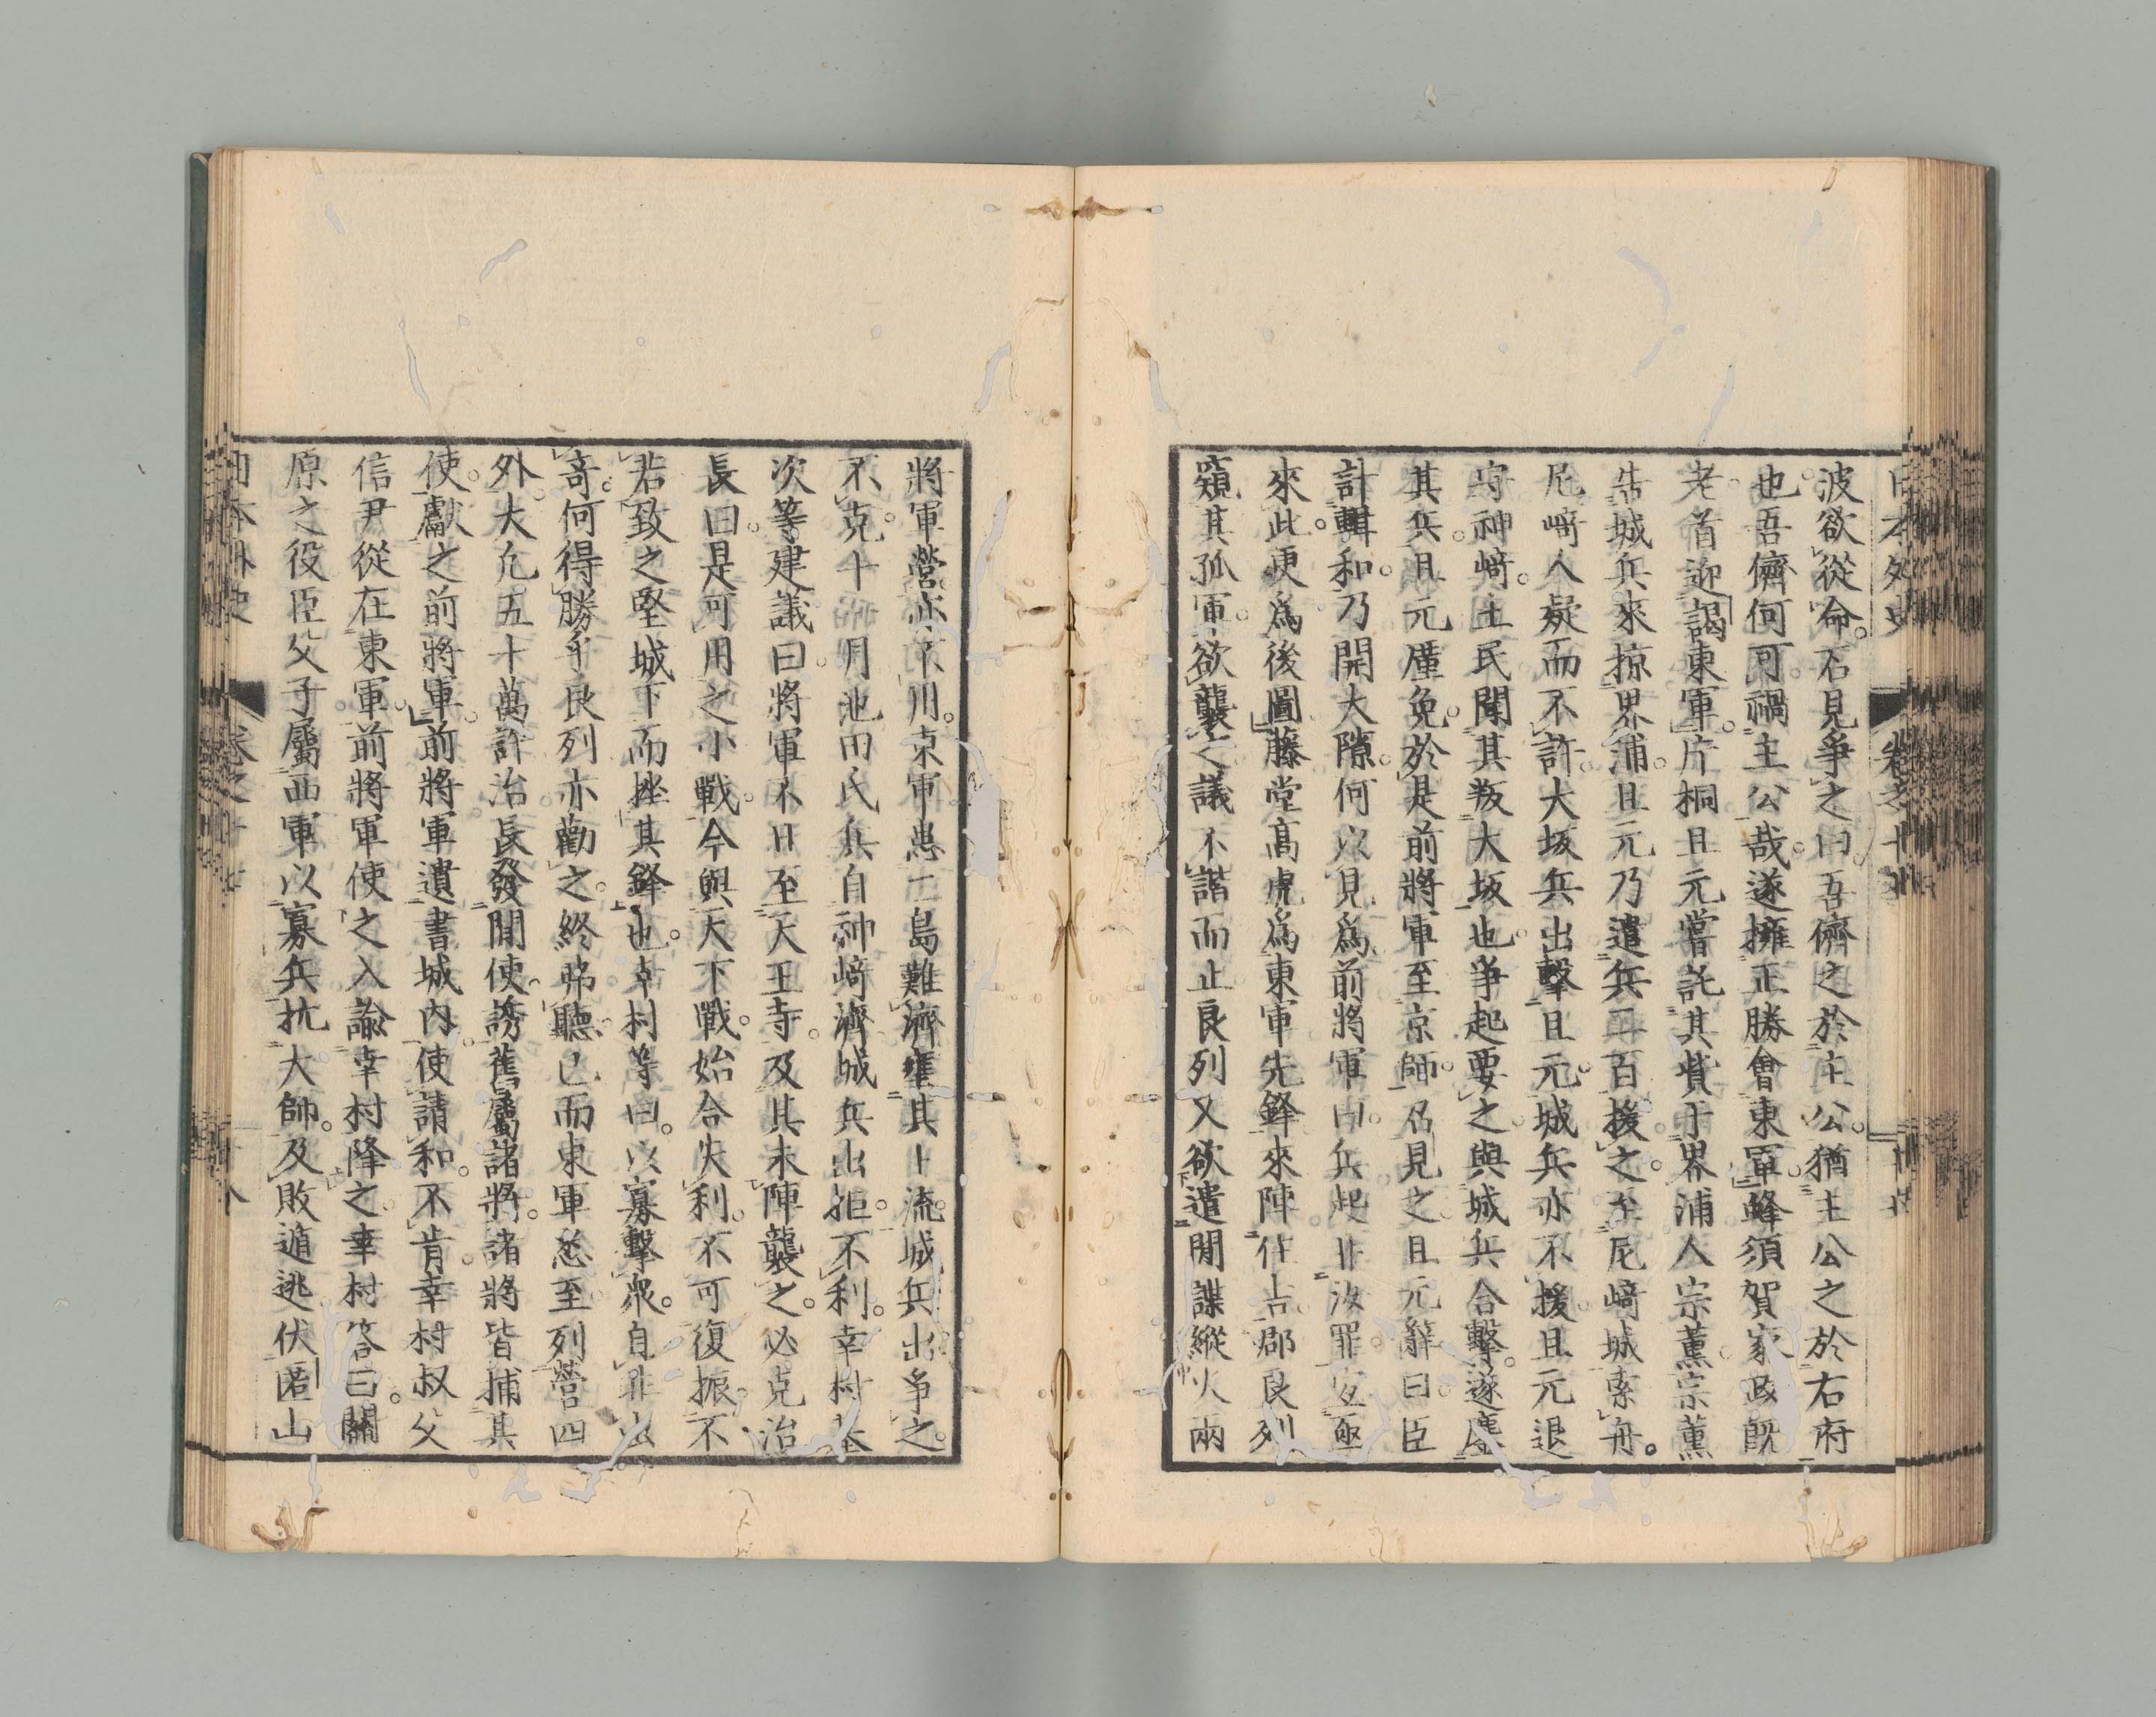 日本外史 卷之十
波欲從命。石見爭之曰。吾儕之於主公。猶主公之於右府
也。吾儕何可禍主公哉。遂擁正勝會東軍。蜂須賀家政既
老。首迎謁東軍。片桐且元嘗託其貲于界浦人宗薰。宗薰
告城兵來掠界浦。且元乃遣兵二百援之。至尼﨑城索舟。
尼﨑人疑而不許。大坂兵出擊且元。城兵亦不援。且元退
奔神﨑。土民聞其叛大坂也。爭起要之。與城兵合擊。遂鏖
其兵。且元厪免。於是前將軍至京師。召見之。且元辭曰。臣
計輯和。乃開大隙。何以見為前將軍曰。兵起非汝罪。宜亟
來此。更為後圖。藤堂高虎為東軍先鋒。來陣住吉。郡良列
窺其孤軍。欲襲之。議不諧而止。良列又欲遣間諜縱火兩
將軍營。亦不用。東軍患二島難濟。壅其上流。城兵出爭之。
不克。十一月。池田氏兵自神﨑濟。城兵出拒。不利。幸村基
次等建議曰。將軍不日至天王寺。及其未陣襲之。必克。治
長曰。是可用之小戰。今與天下戰。始合失利。不可復振。不
若致之堅城下而挫其鋒也。幸村等曰。以寡擊衆。自非出
奇。何得勝乎。良列亦勸之。終弗聽。已而東軍悉至。列營四
外。大凡五十萬許。治長發間使。誘舊屬諸將。諸將皆捕其
使。獻之前將軍。前將軍遺書城內。使請和。不肯。幸村叔父
信尹從在東軍。前將軍使之入諭幸村降之。幸村答曰。關
原之役。臣父子屬西軍。以寡兵抗大師。及敗遁逃。伏匿山
日本外史 卷之十 十八